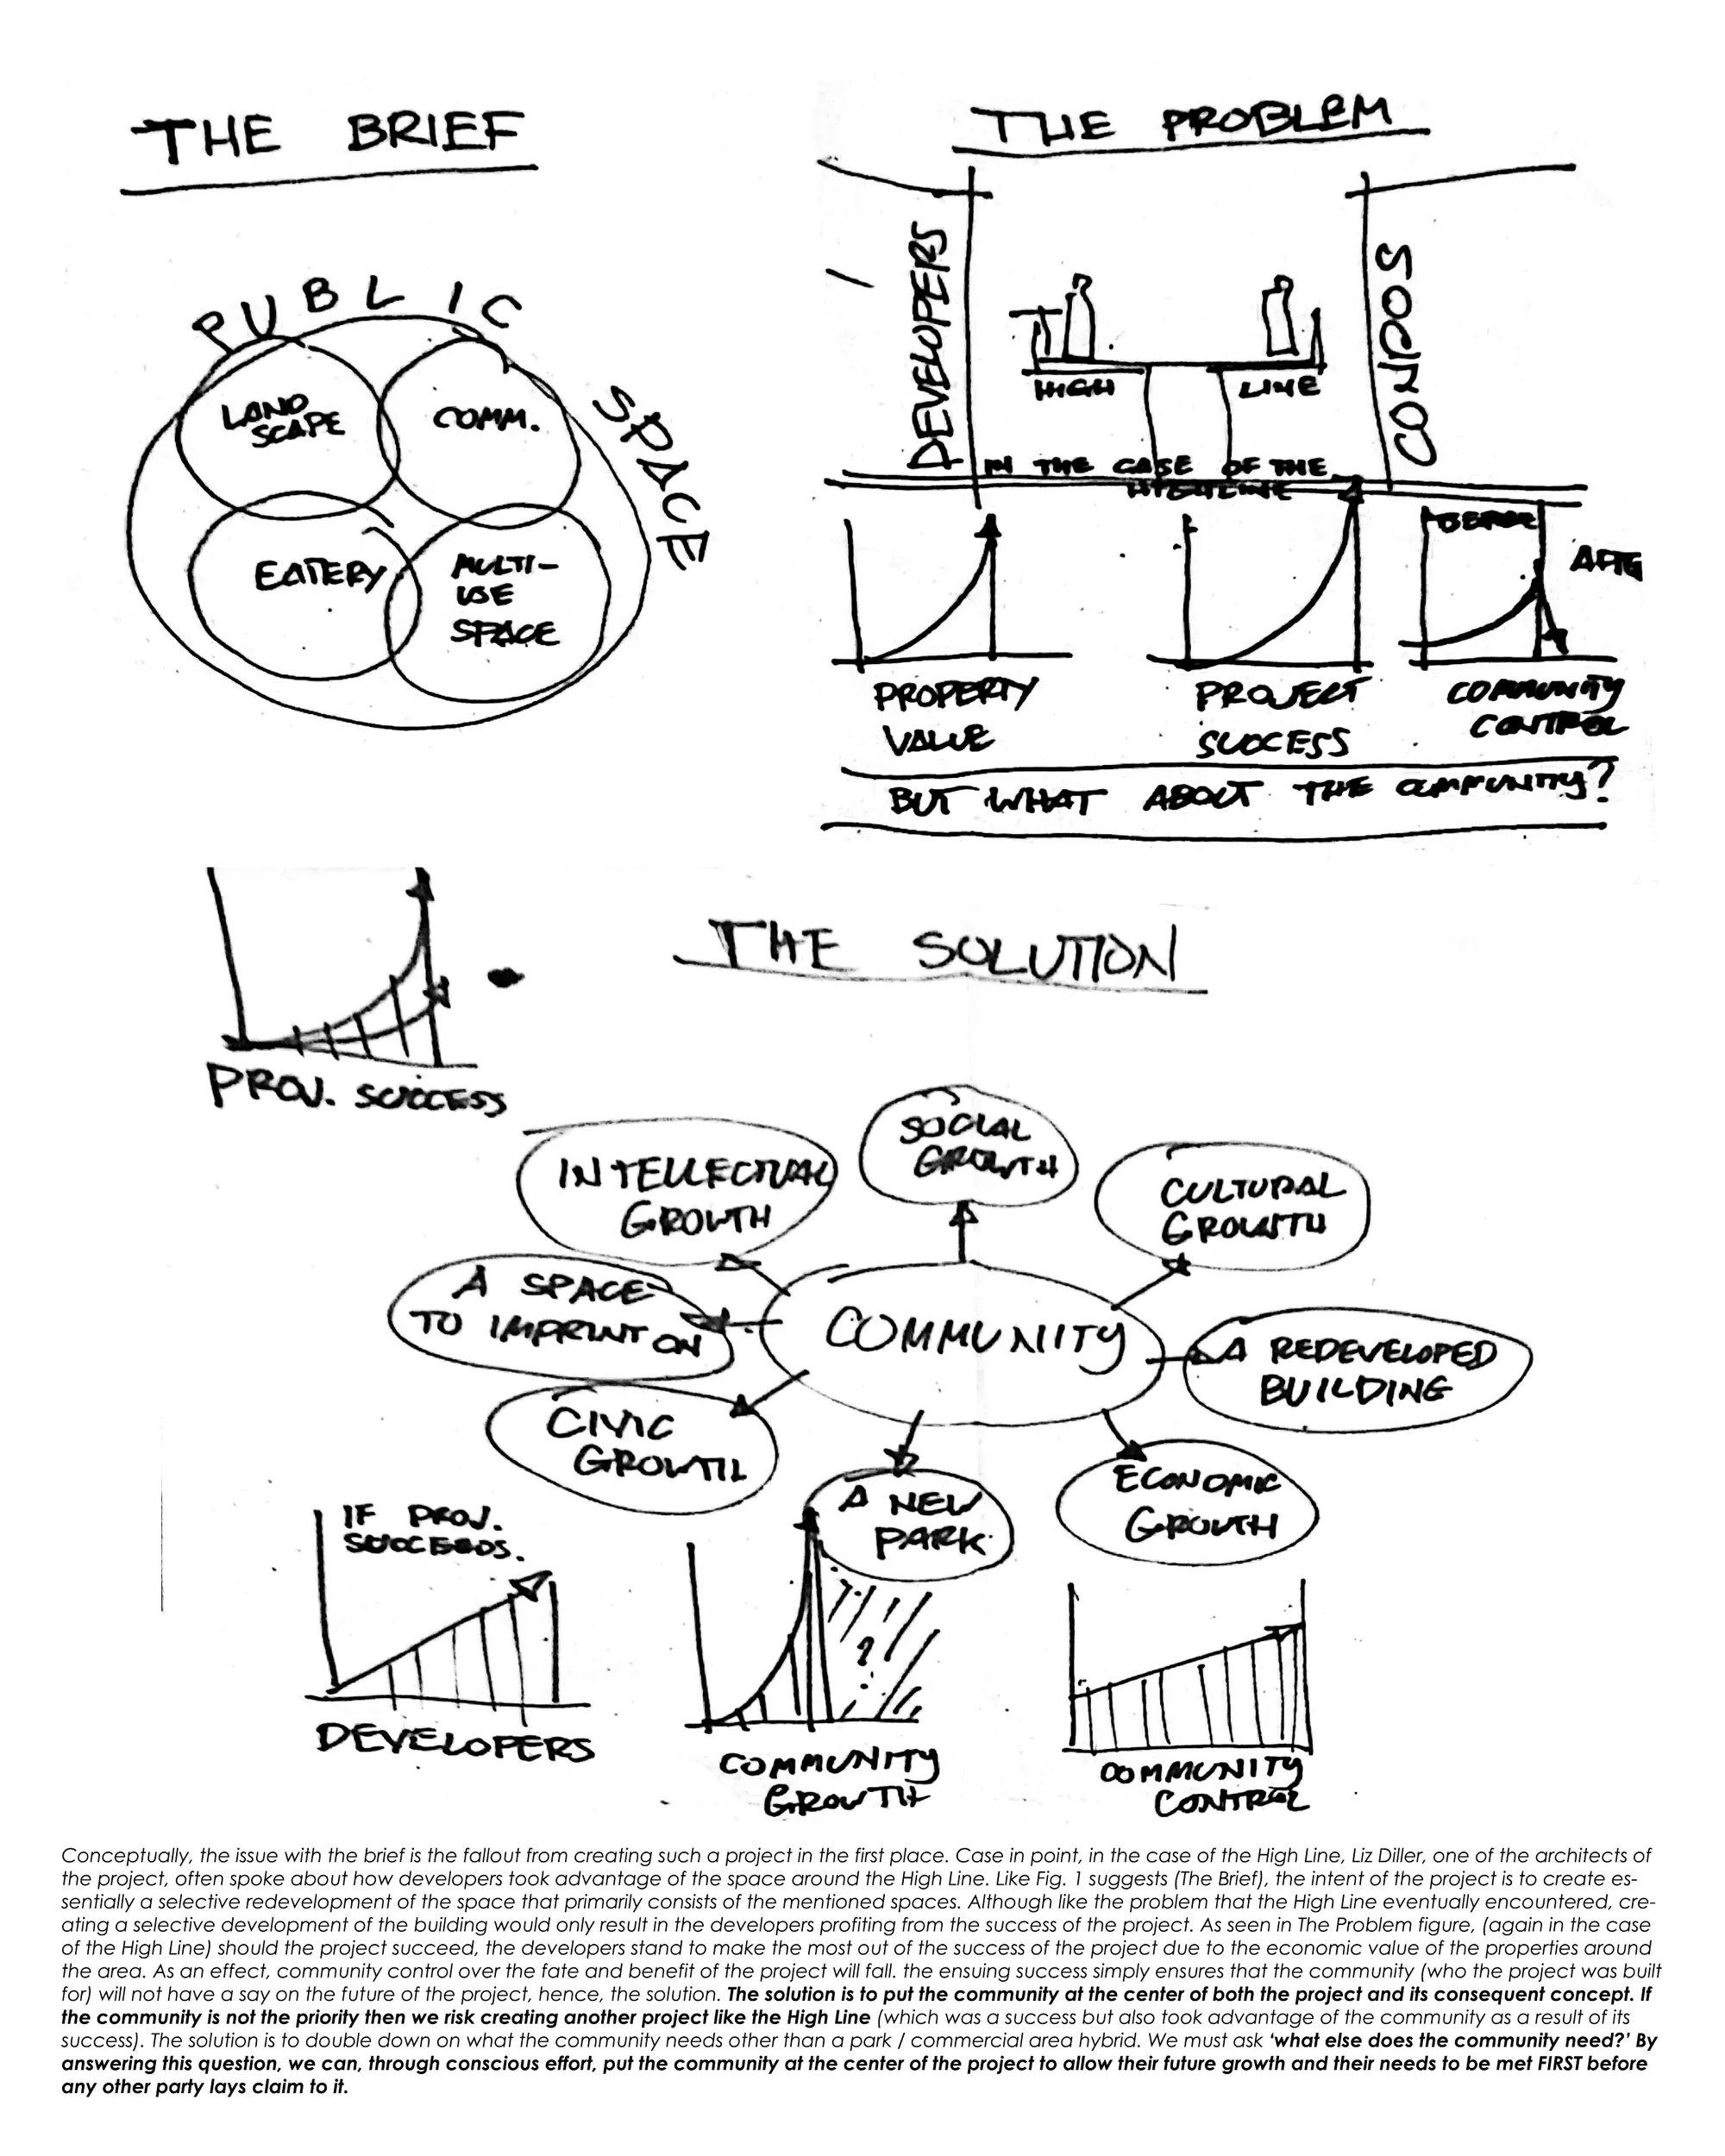 THE BRIEF
PUBLIC SPACE
LAND
SCAPE
COMM.
EATERY
MULTI-
USE
SPACE
THE PROBLEM
DEVELOPERS
CONDOS
HIGH LINE
IN THE CASE OF THE
HIGHLINE
PROPERTY
VALUE
PROJECT
SUCCESS
BEFORE
COMMUNITY
CONTROL
BUT WHAT ABOUT THE COMMUNITY?
PROJ. SUCCESS
THE SOLUTION
INTELLECTUAL
GROWTH
SOCIAL
GROWTH
CULTURAL
GROWTH
A SPACE
TO IMPRINT ON
COMMUNITY
A REDEVELOPED
BUILDING
CIVIC
GROWTH
A NEW
PARK
ECONOMIC
GROWTH
IF PROJ.
SUCCEEDS.
DEVELOPERS
?
COMMUNITY
GROWTH
COMMUNITY
CONTROL
Conceptually, the issue with the brief is the fallout from creating such a project in the first place. Case in point, in the case of the High Line, Liz Diller, one of the architects of
the project, often spoke about how developers took advantage of the space around the High Line. Like Fig. 1 suggests (The Brief), the intent of the project is to create es-
sentially a selective redevelopment of the space that primarily consists of the mentioned spaces. Although like the problem that the High Line eventually encountered, cre-
ating a selective development of the building would only result in the developers profiting from the success of the project. As seen in The Problem figure, (again in the case
of the High Line) should the project succeed, the developers stand to make the most out of the success of the project due to the economic value of the properties around
the area. As an effect, community control over the fate and benefit of the project will fall. the ensuing success simply ensures that the community (who the project was built
for) will not have a say on the future of the project, hence, the solution. The solution is to put the community at the center of both the project and its consequent concept. If
the community is not the priority then we risk creating another project like the High Line (which was a success but also took advantage of the community as a result of its
success). The solution is to double down on what the community needs other than a park / commercial area hybrid. We must ask ‘what else does the community need?’ By
answering this question, we can, through conscious effort, put the community at the center of the project to allow their future growth and their needs to be met FIRST before
any other party lays claim to it.